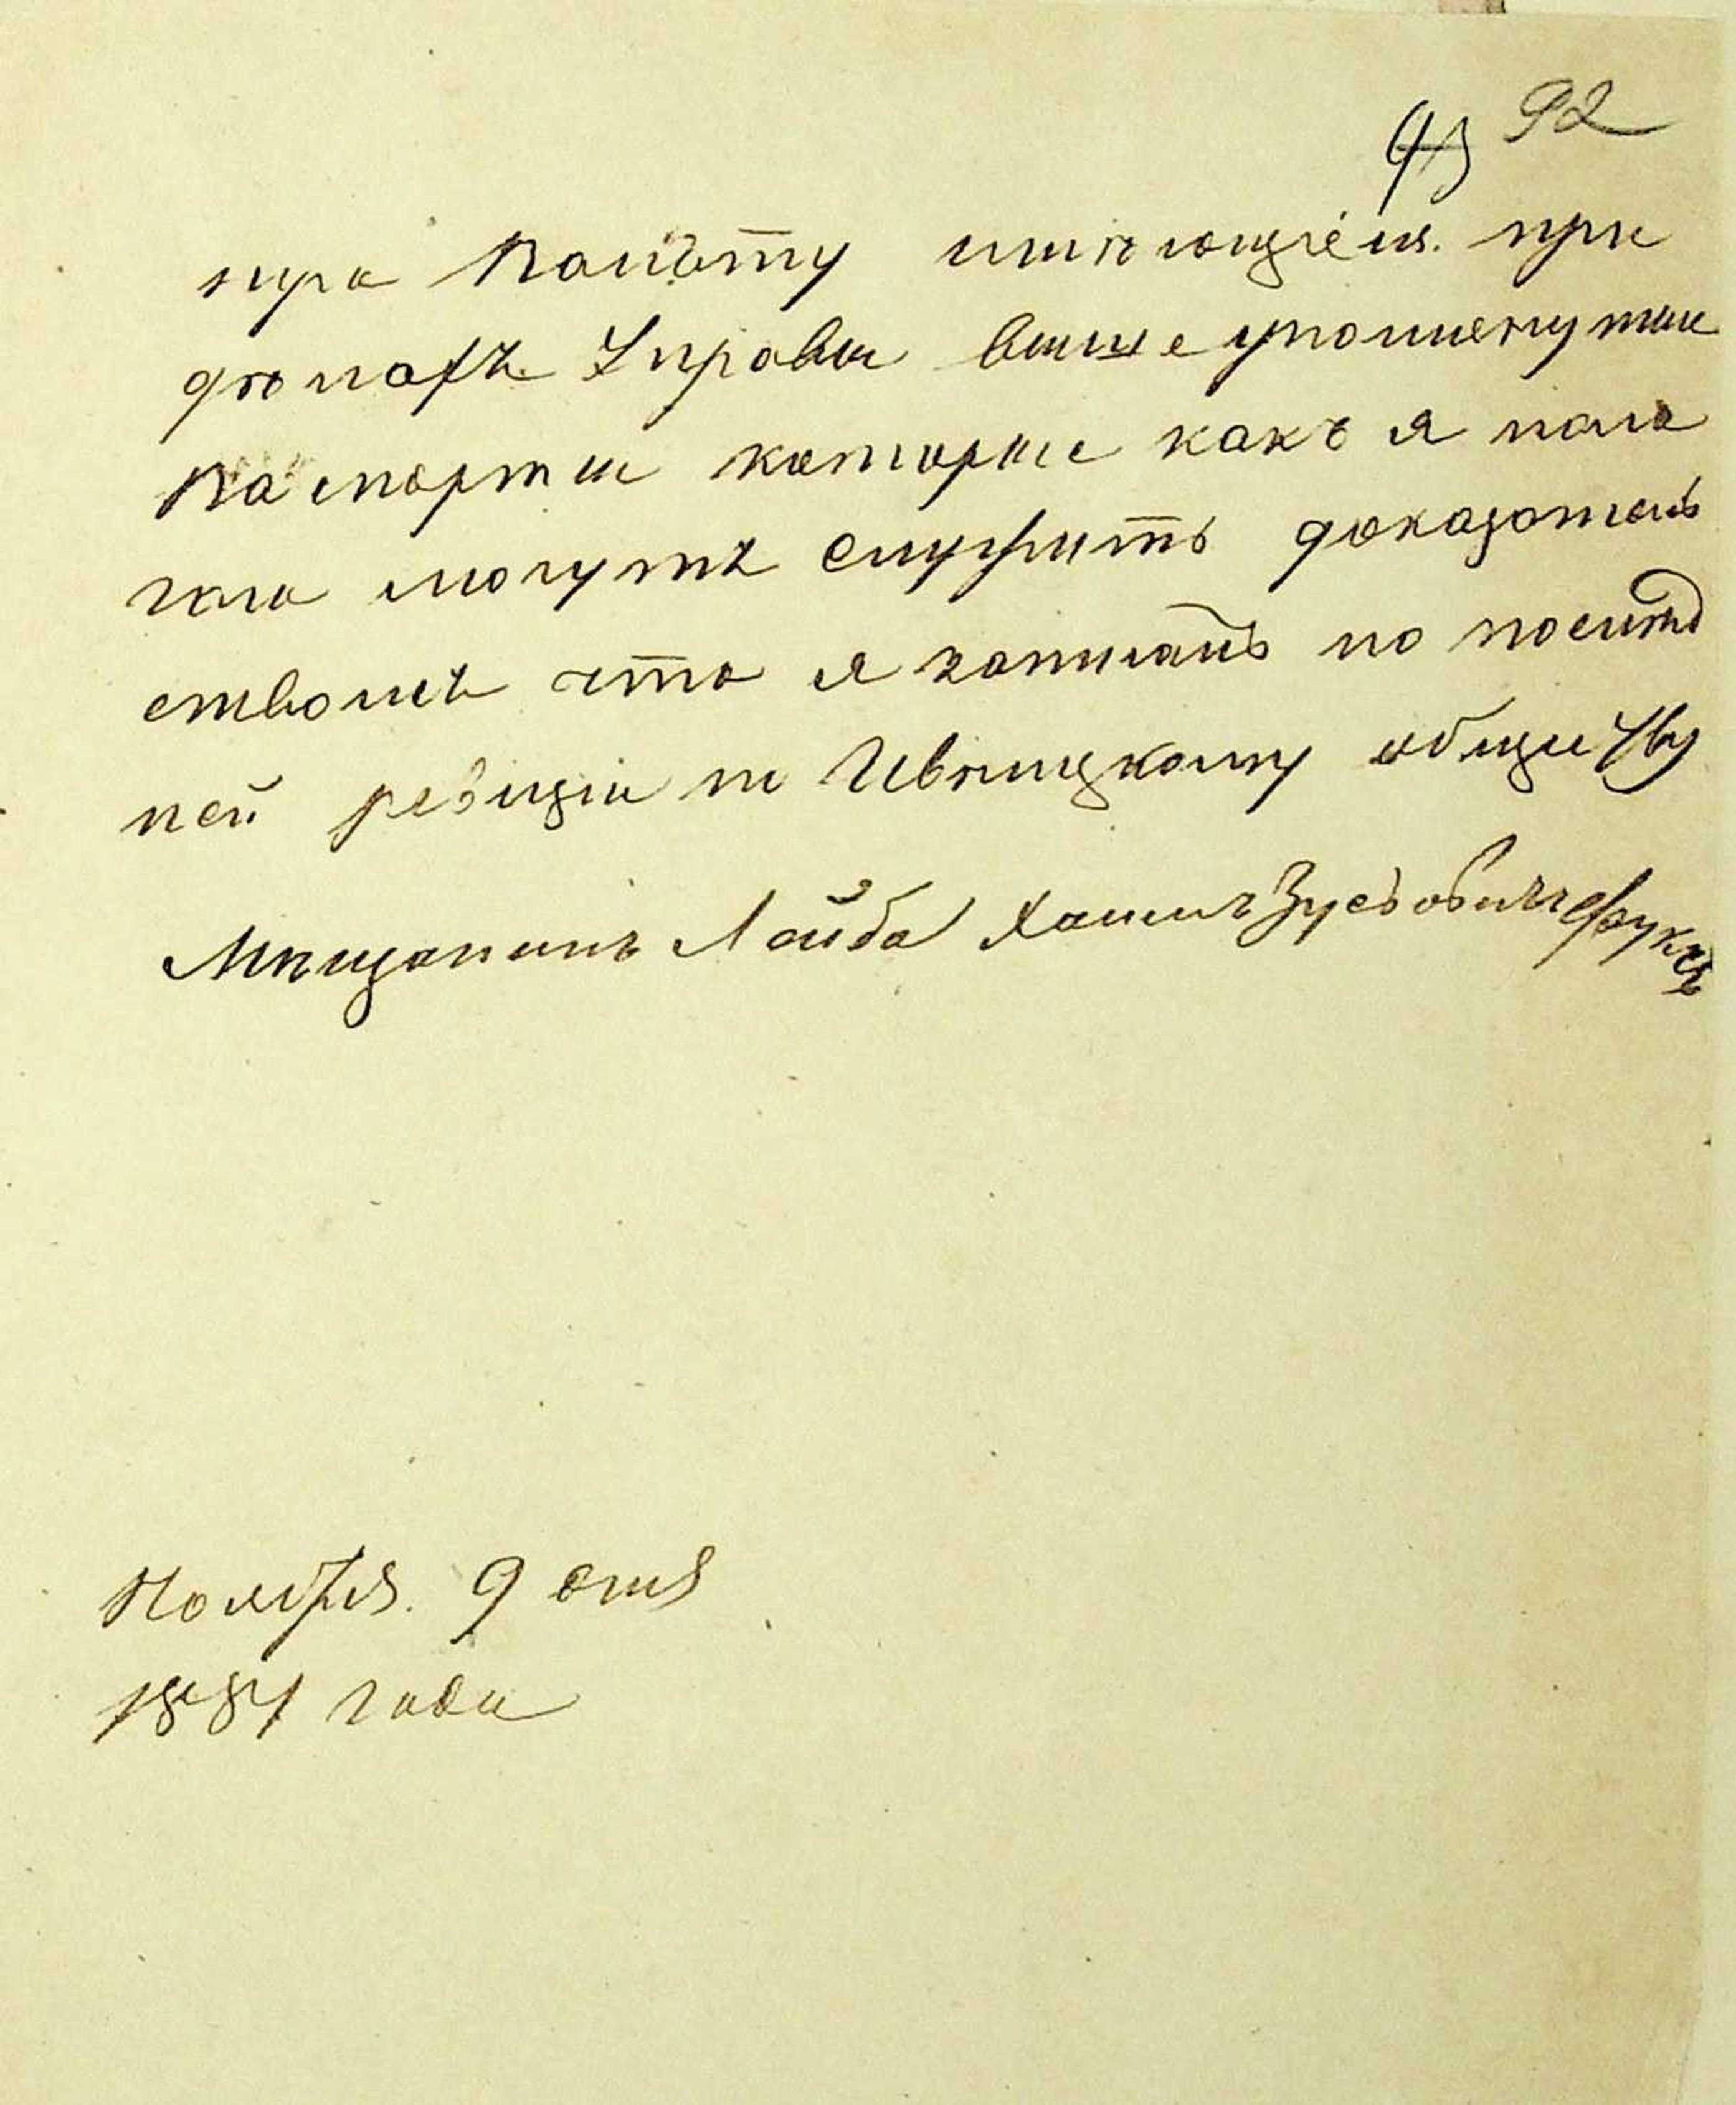 92
нира Палату имѣющіеся. при
дѣлахъ Управы вышеупомянутые
Паспорты которые какъ я пола
гаю могутъ служить доказатель
ствомъ что я записанъ по послѣд
ней ревизіи по Ивницкому обществу
Мѣщанинъ Лейба Хаимъ Зусьовичъ Фуксъ
Ноября. 9 дня
1881 года